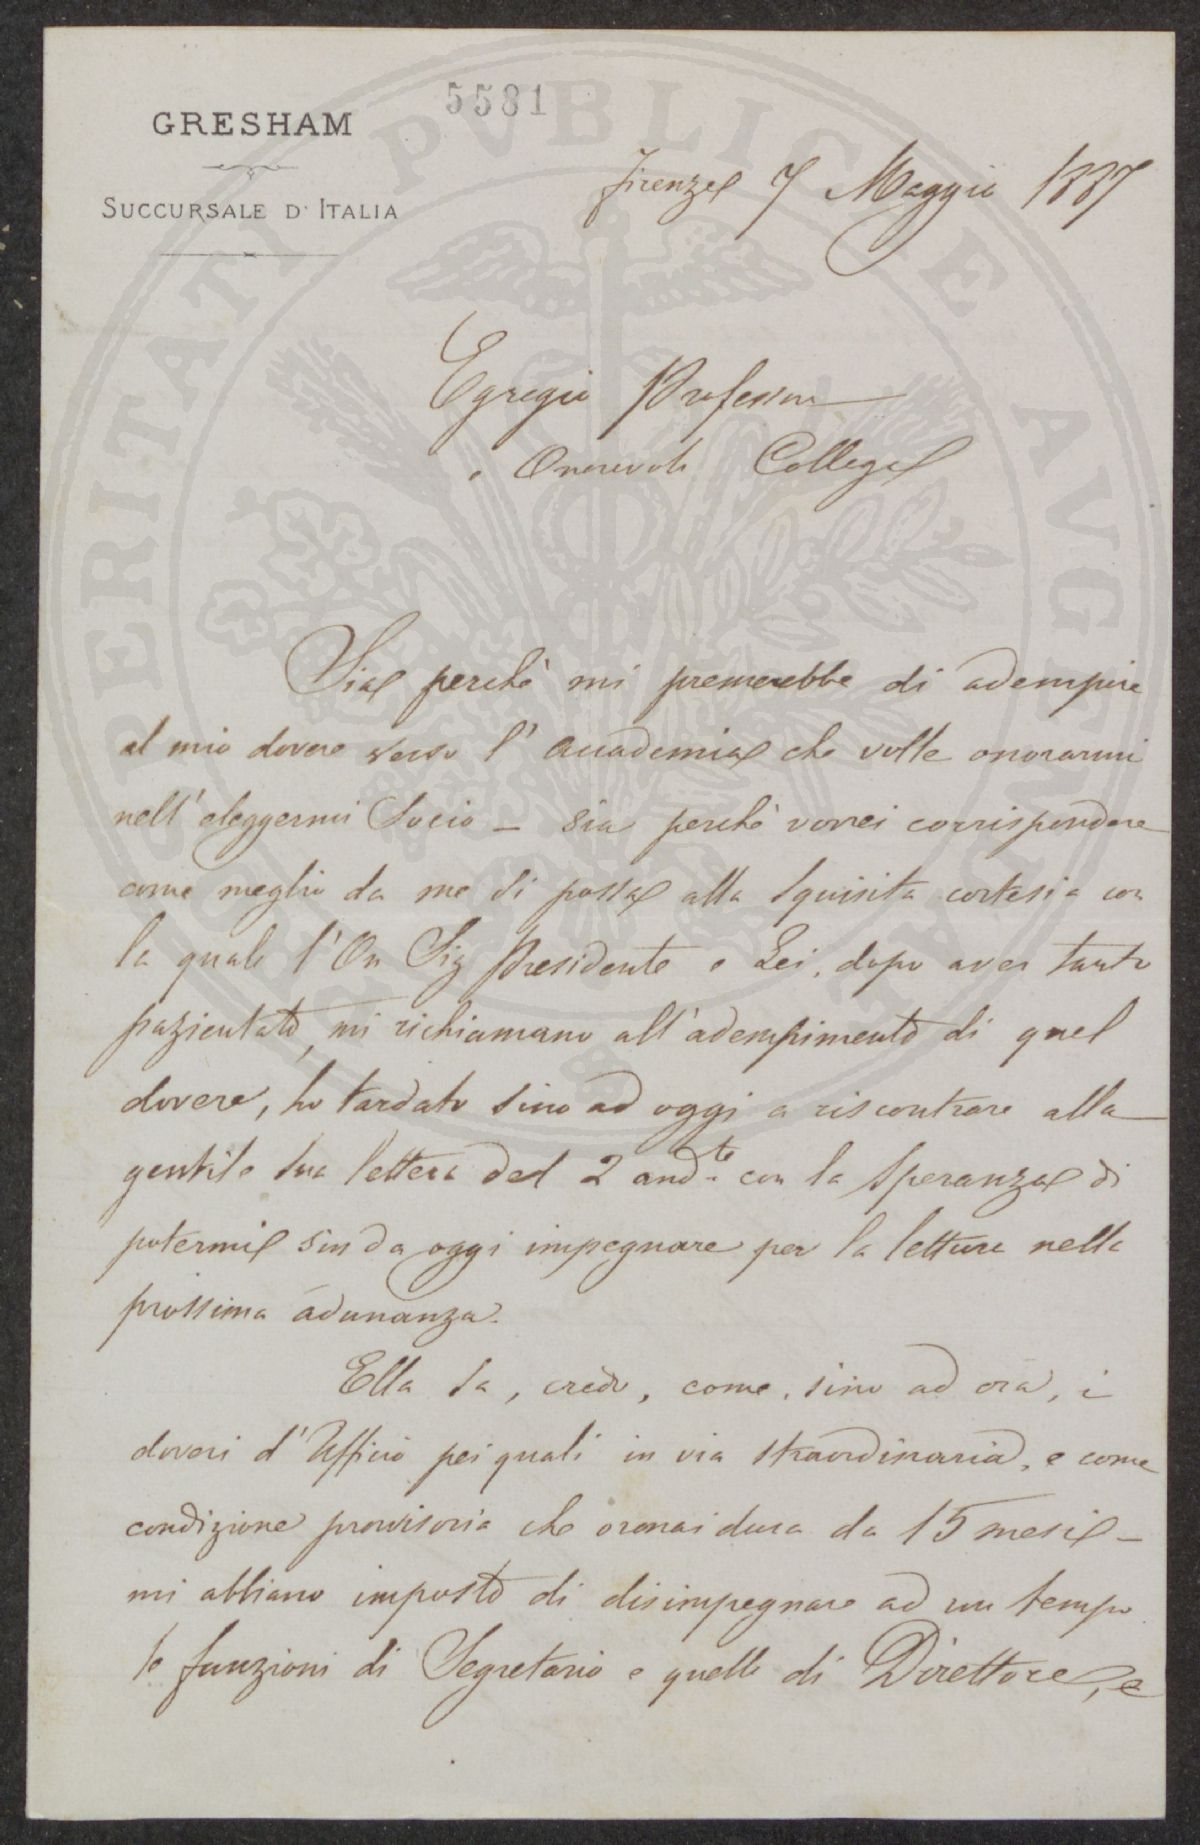 5581
GRESHAM
SUCCURSALE D'ITALIA
Firenze 7 Maggio 1887
Egregio Professore
e Onorevole Collega
Sia perchè mi premerebbe di adempire
al mio dovere verso l'Accademia che volle onorarmi
nell'eleggermi Socio – sia perchè vorrei corrispondere
come meglio da me si possa alla squisita cortesia con
la quale l'On Sig Presidente e Lei, dopo aver tanto
pazientato, mi richiamano all'adempimento di quel
dovere, ho tardato sino ad oggi a riscontrare alla
gentile sua lettera del 2 andte con la speranza di
potermi sin da oggi impegnare per la lettura nella
prossima adunanza.
Ella sa, credo, come, sino ad ora, i
doveri d'Ufficio pei quali in via straordinaria, e come
condizione provvisoria che oramai dura da 15 mesi –
mi abbiano imposto di disimpegnare ad un tempo
le funzioni di Segretario e quelle di Direttore, e
PROSPERITATI PVBLICAE AVGENDAE